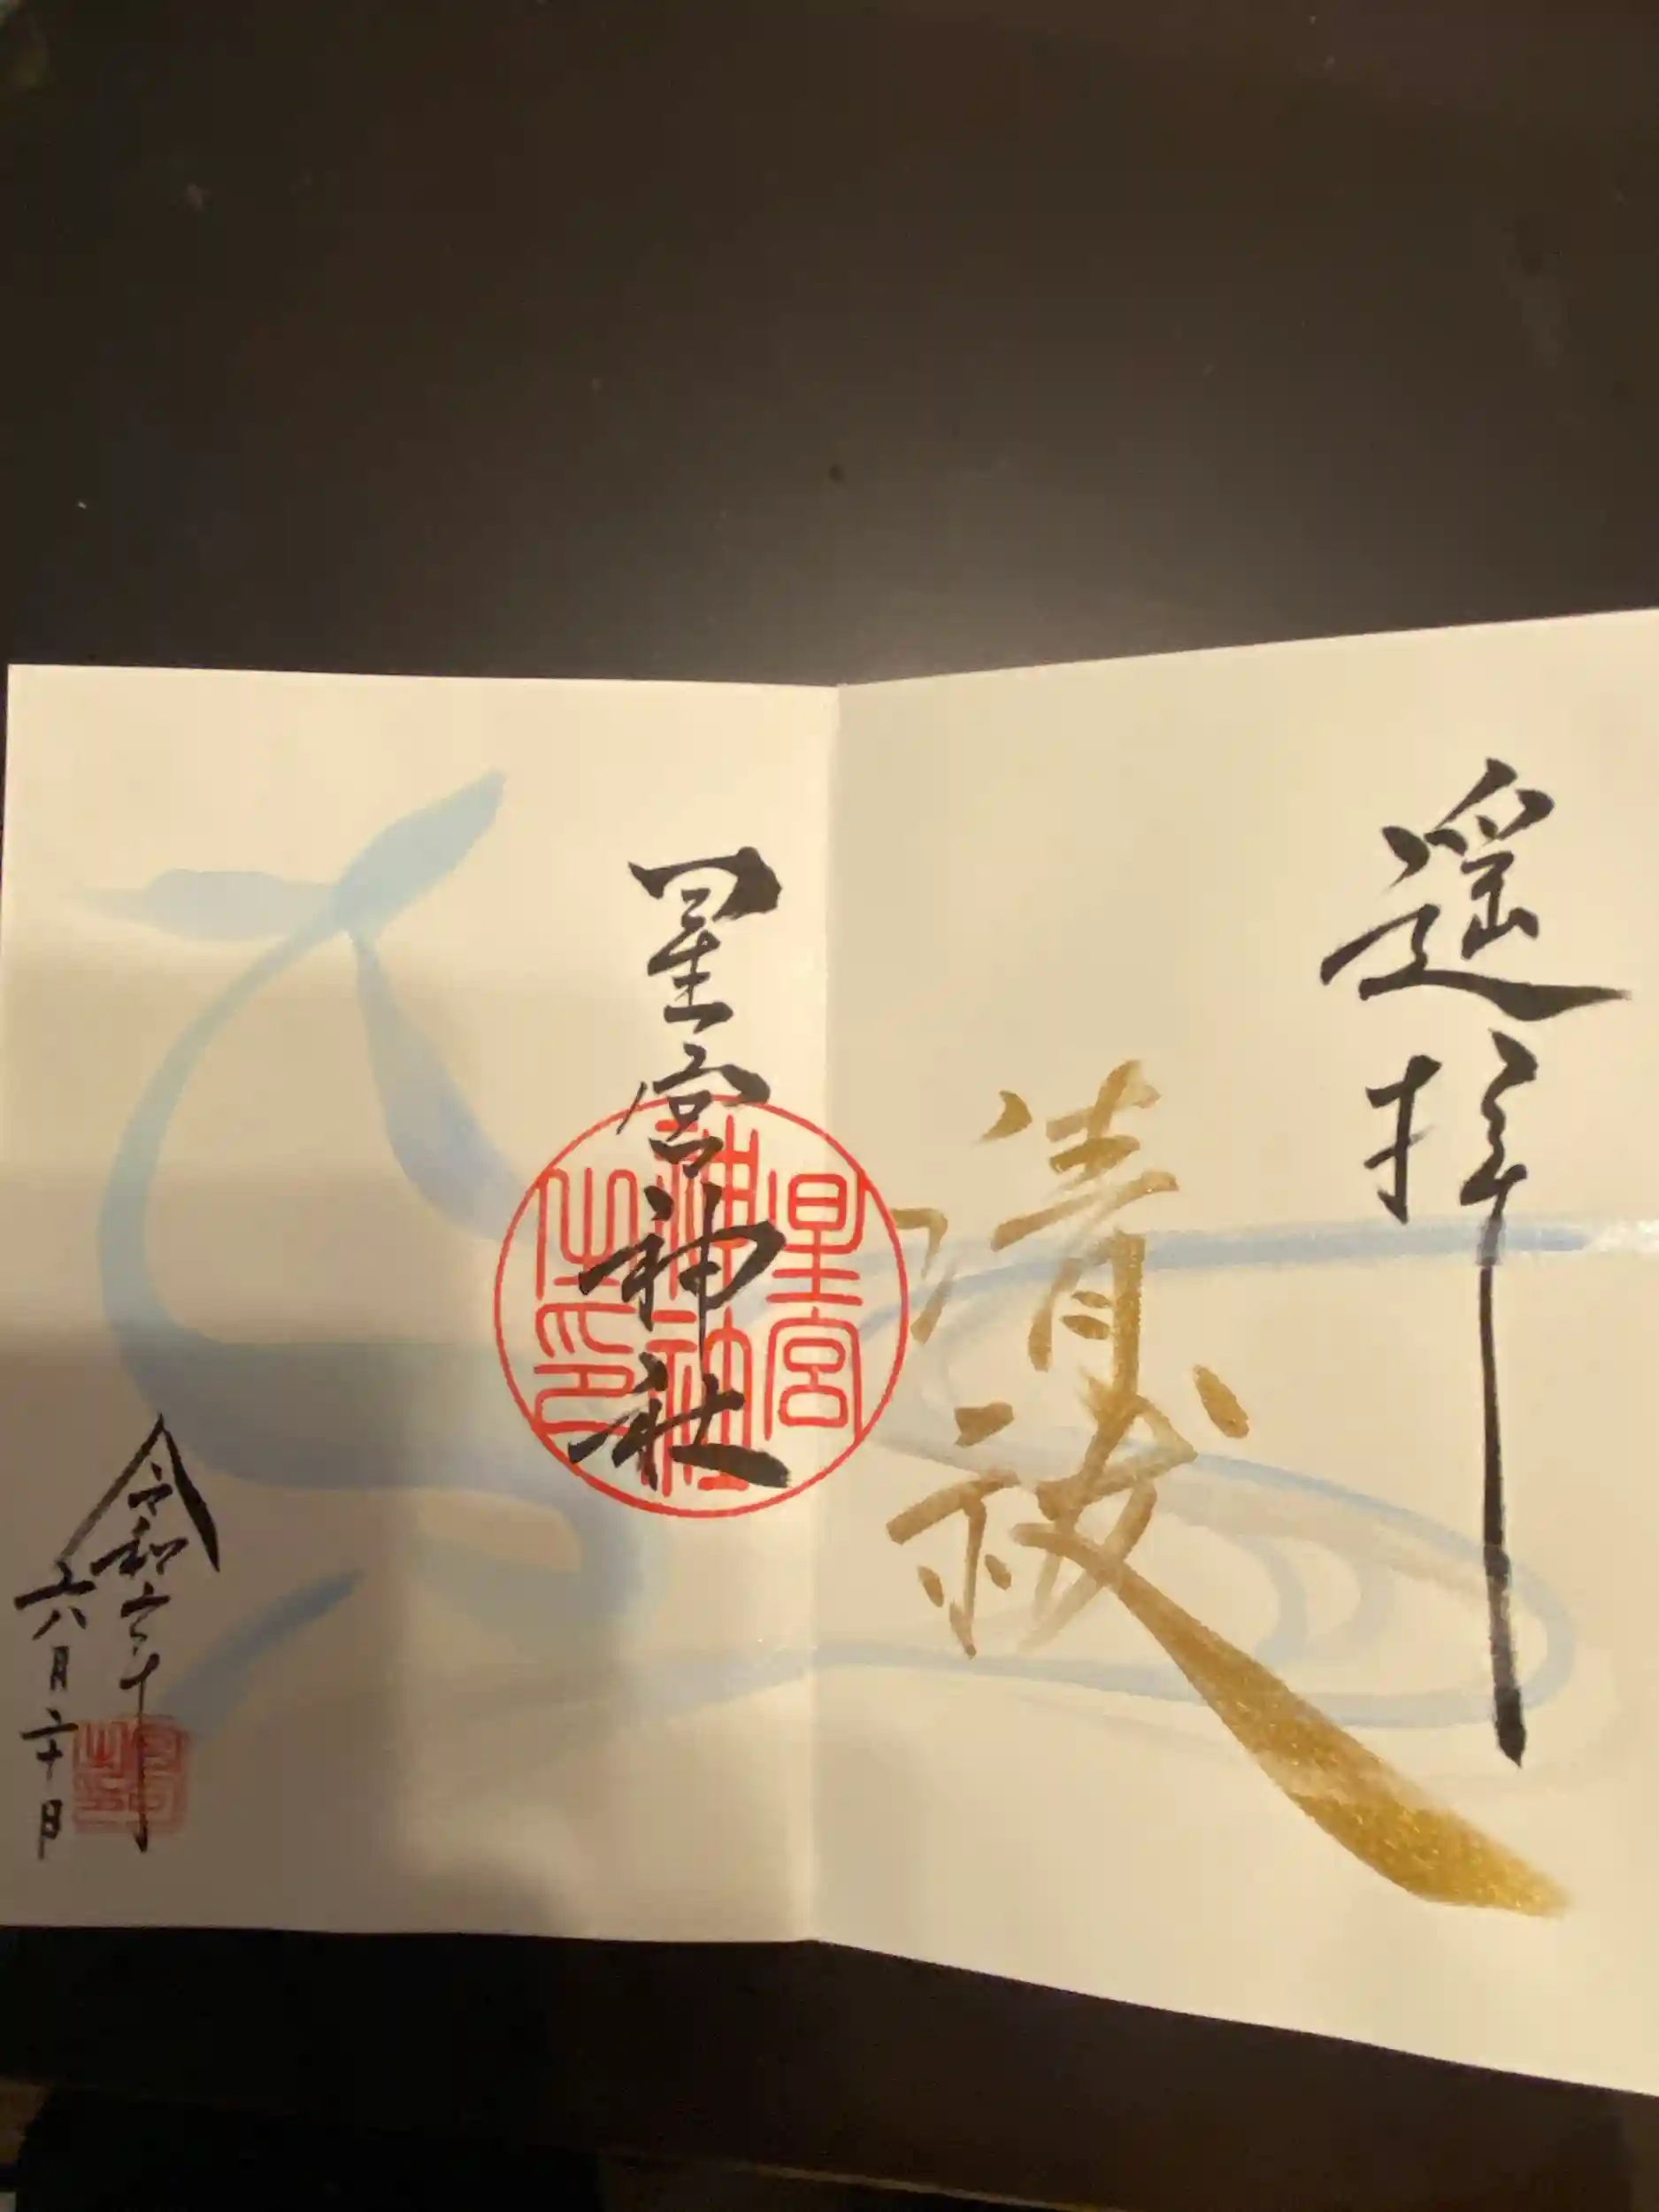 遥拝
清祓
星宮神社
星宮
神社
之印
令和二年
六月二十日